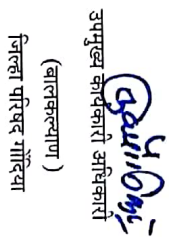 उपमुख्य कार्यकारी अधिकारी
(बालकल्याण)
जिल्हा परिषद गोंदिया